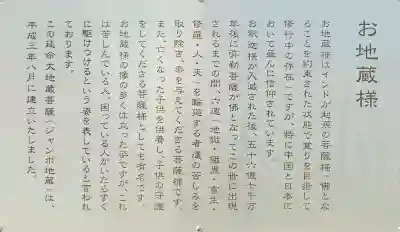 お地蔵様
お地蔵様はインドが起源の菩薩様―佛とな
ることを約束された状態で覚りを目指して
修行中の存在―ですが、特に中国と日本に
おいて盛んに信仰されています。
お釈迦様が入滅された後、五十六億七千万
年後に弥勒菩薩が佛となってこの世に出現
されるまでの間、六道（地獄・餓鬼・畜生・
修羅・人・天）を輪廻する者達の苦しみを
取り除き、楽を与えてくださる菩薩様です。
また、亡くなった子供を供養し、子供の守護
をしてくださる菩薩様としても有名です。
お地蔵様の像の多くは立った姿ですが、これ
は苦しんでいる人、困っている人がいたらすぐ
に駆けつけるという姿を表していると言われ
ております。
この延命大地蔵菩薩（ジャンボ地蔵）は、
平成三年八月に建立いたしました。